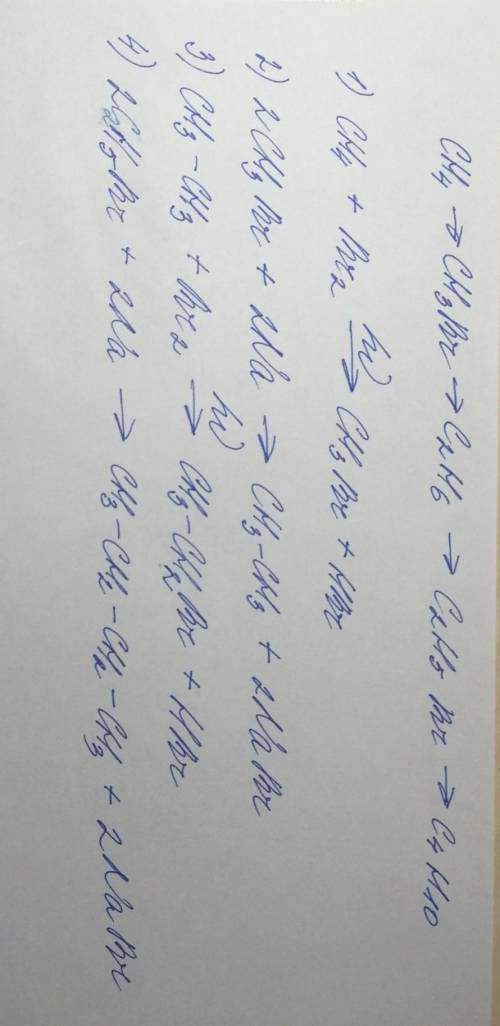 CH4 → CH3Br → C2H6 → C2H5Br → C4H10
1) CH4 + Br2 hν→ CH3Br + HBr
2) 2CH3Br + 2Na → CH3-CH3 + 2NaBr
3) CH3-CH3 + Br2 hν→ CH3-CH2Br + HBr
4) 2C2H5Br + 2Na → CH3-CH2-CH2-CH3 + 2NaBr